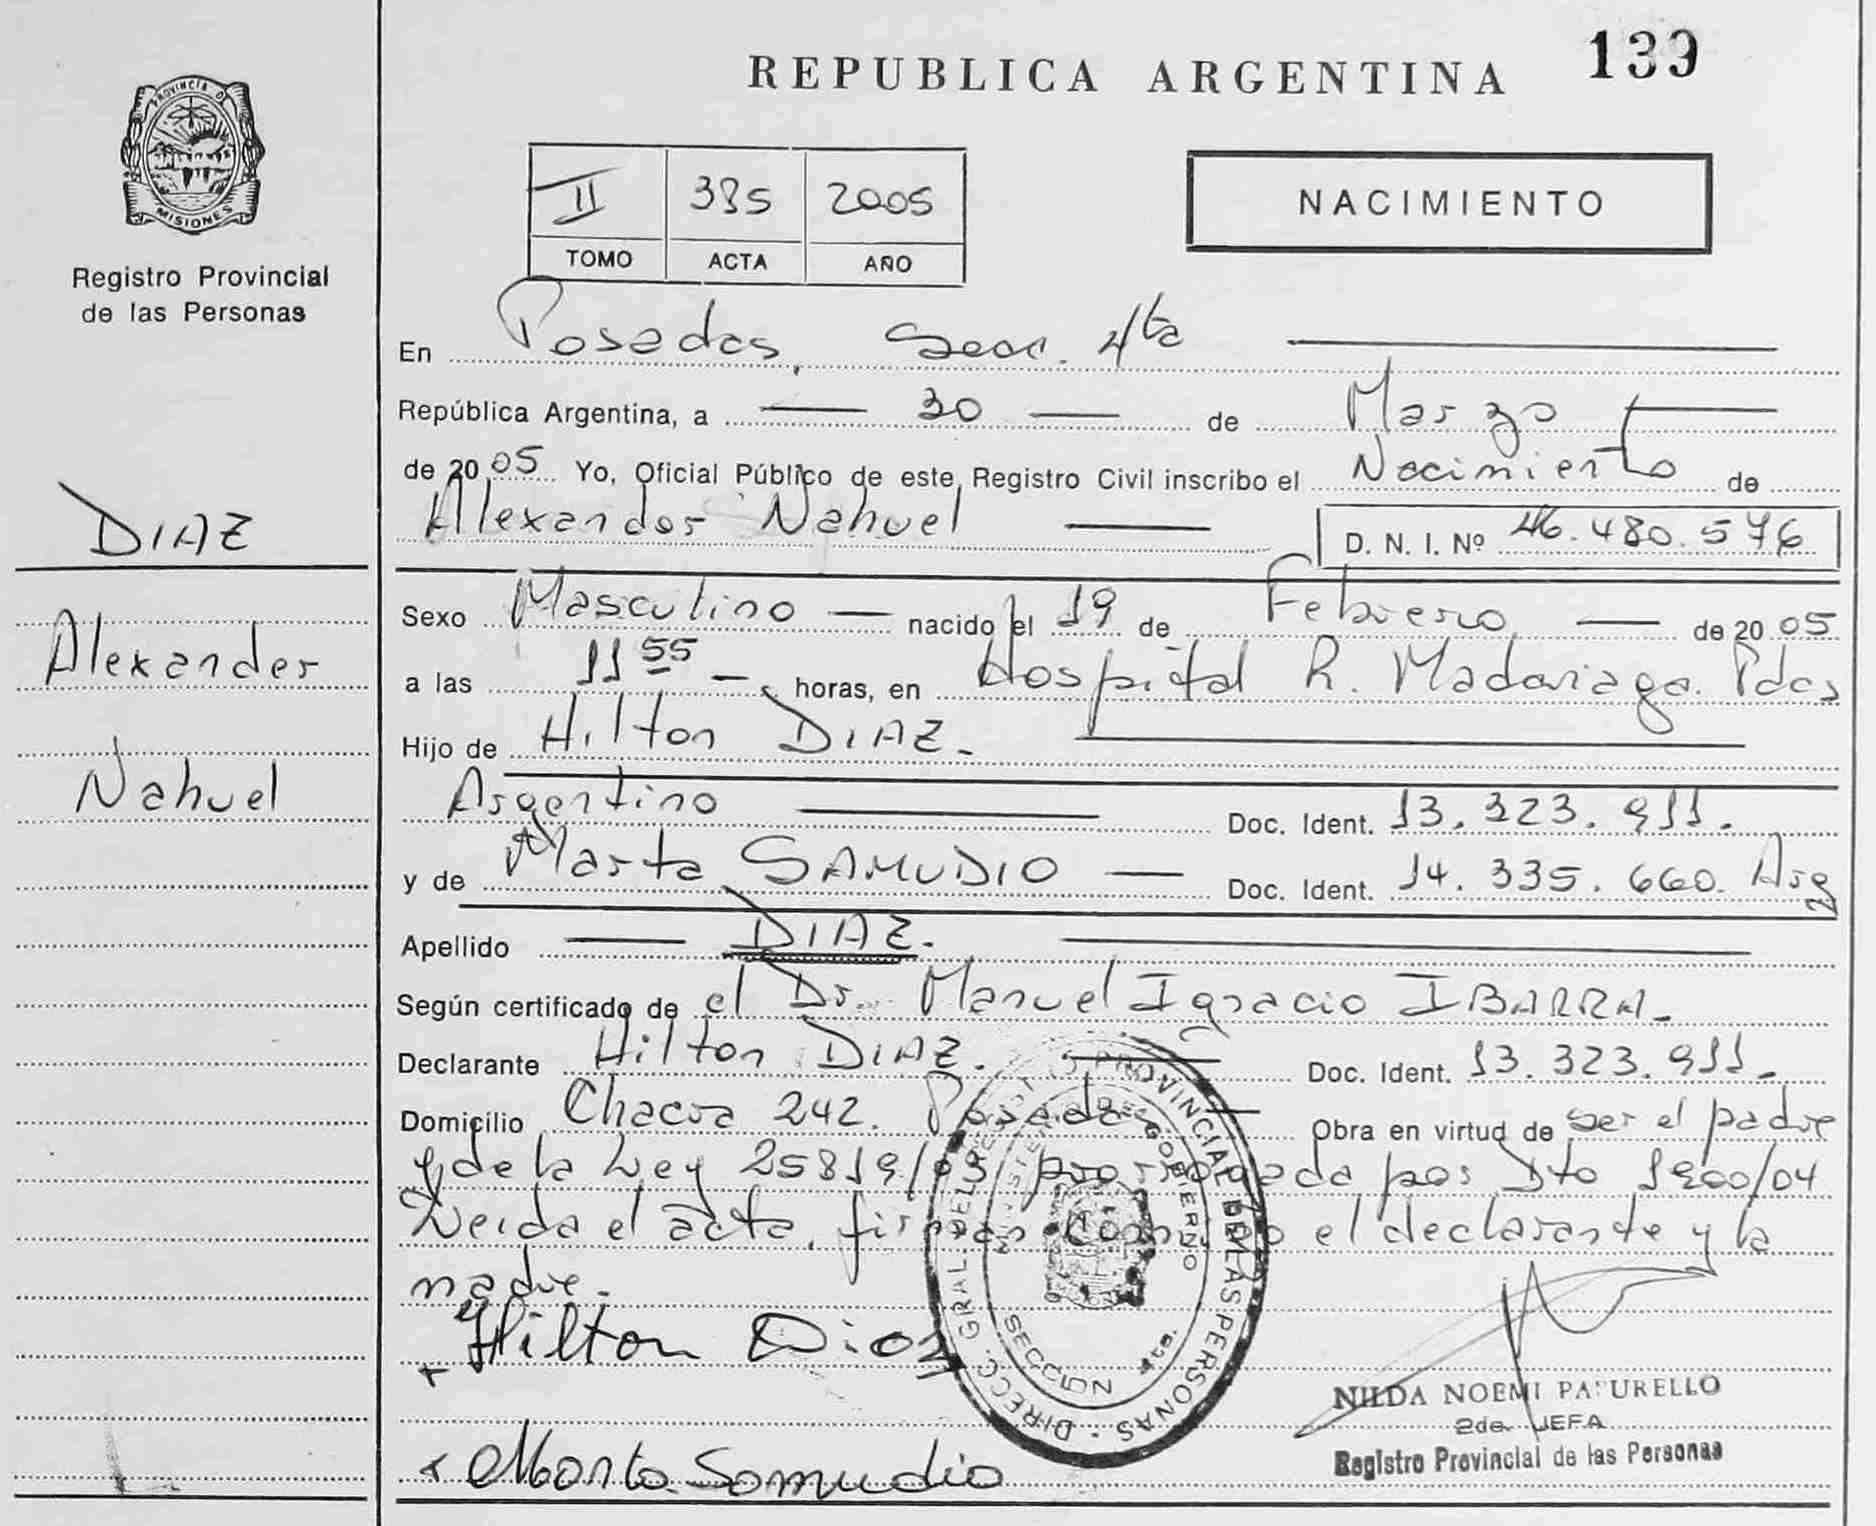 PROVINCIA D
MISIONES
Registro Provincial
de las Personas
DIAZ
Alexander
Nahuel
REPUBLICA ARGENTINA 139
II 385 2005
TOMO ACTA AÑO
NACIMIENTO
En Posadas, Secc. 4ta
República Argentina, a 30 de Marzo
de 2005 Yo, Oficial Público de este Registro Civil inscribo el Nacimiento de
Alexander Nahuel D. N. I. Nº 46.480.576
Sexo Masculino nacido el 19 de Febrero de 2005
a las 11 55 horas, en Hospital R. Madariaga. Pdas
Hijo de Hilton DIAZ.
Argentino Doc. Ident. 13.323.911.
y de Marta SAMUDIO Doc. Ident. 14.335.660. Arg
Apellido DIAZ.
Según certificado de el Dr. Manuel Ignacio IBARRA.
Declarante Hilton DIAZ. Doc. Ident. 13.323.911.
Domicilio Chacra 242. Posadas Obra en virtud de ser el padre
y de la Ley 25819/03 prorrogada por Dto 1900/04
Leida el acta, firman conmigo el declarante y la
madre.
Hilton Diaz
Marta Samudio
DIRECC. GRAL. DEL REGISTRO PROVINCIAL DE LAS PERSONAS
MINISTERIO DE GOBIERNO
SECCION 4ta.
NILDA NOEMI PATURELLO
2da. JEFA
Registro Provincial de las Personas